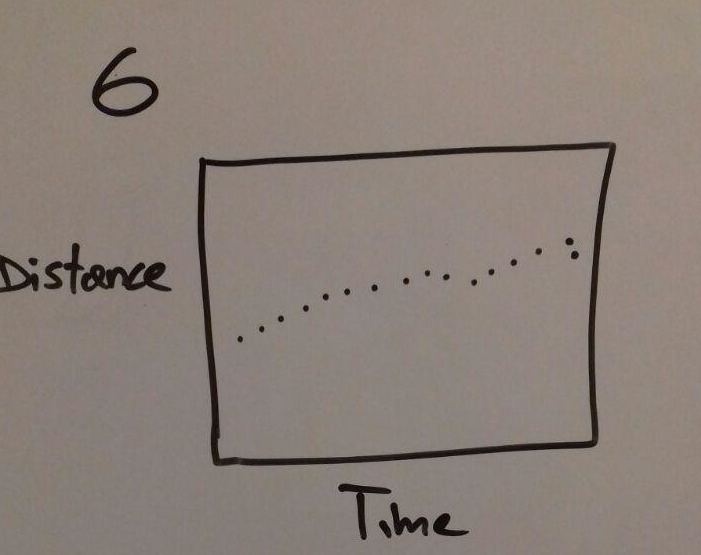 6
Distance
Time